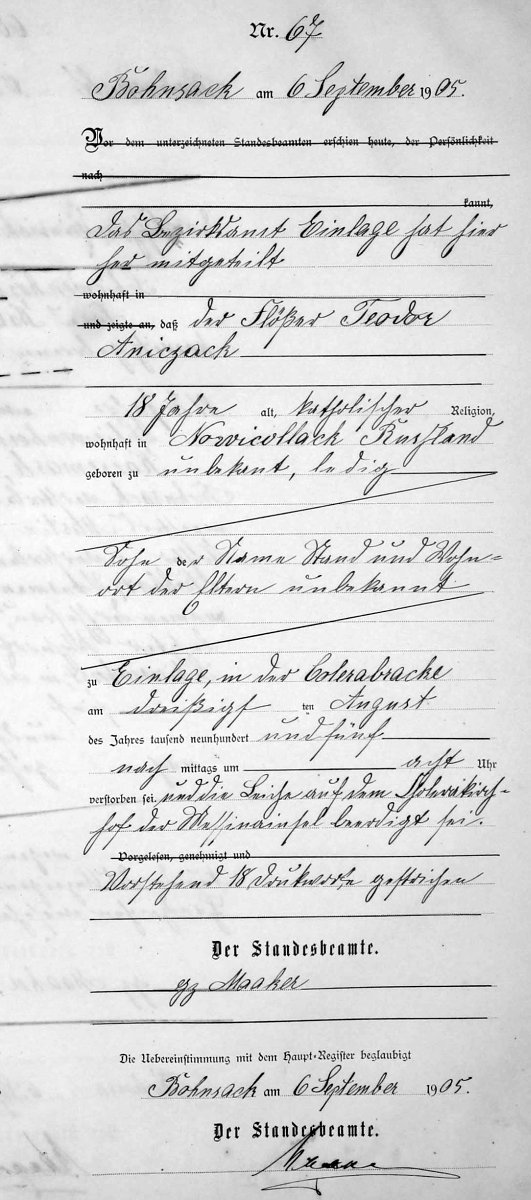 Nr. 67
Bohnsack am 6 September 1905.
Vor dem unterzeichneten Standesbeamten erschien heute, der Persönlichkeit
nach
kannt,
Das Bezirksamt Einlage hat hier
her mitgeteilt
wohnhaft in
und zeigte an, daß der Flößer Teodor
Aniczack
18 Jahre alt, katholischer Religion,
wohnhaft in Nowicollack Russland
geboren zu unbekant, ledig
Sohn der Name Stand und Wohn=
ort der Eltern unbekannt
zu Einlage, in der Colerabracke
am dreißigs ten August
des Jahres tausend neunhundert und fünf
nach mittags um acht Uhr
verstorben sei und die Leiche auf dem Cholerakirch-
hof der Messinainsel beerdigt sei.
Vorgelesen, genehmigt und
Vorstehend 18 Druckworte gestrichen
Der Standesbeamte.
gz Maaker
Die Uebereinstimmung mit dem Haupt-Register beglaubigt
Bohnsack am 6 September 1905.
Der Standesbeamte.